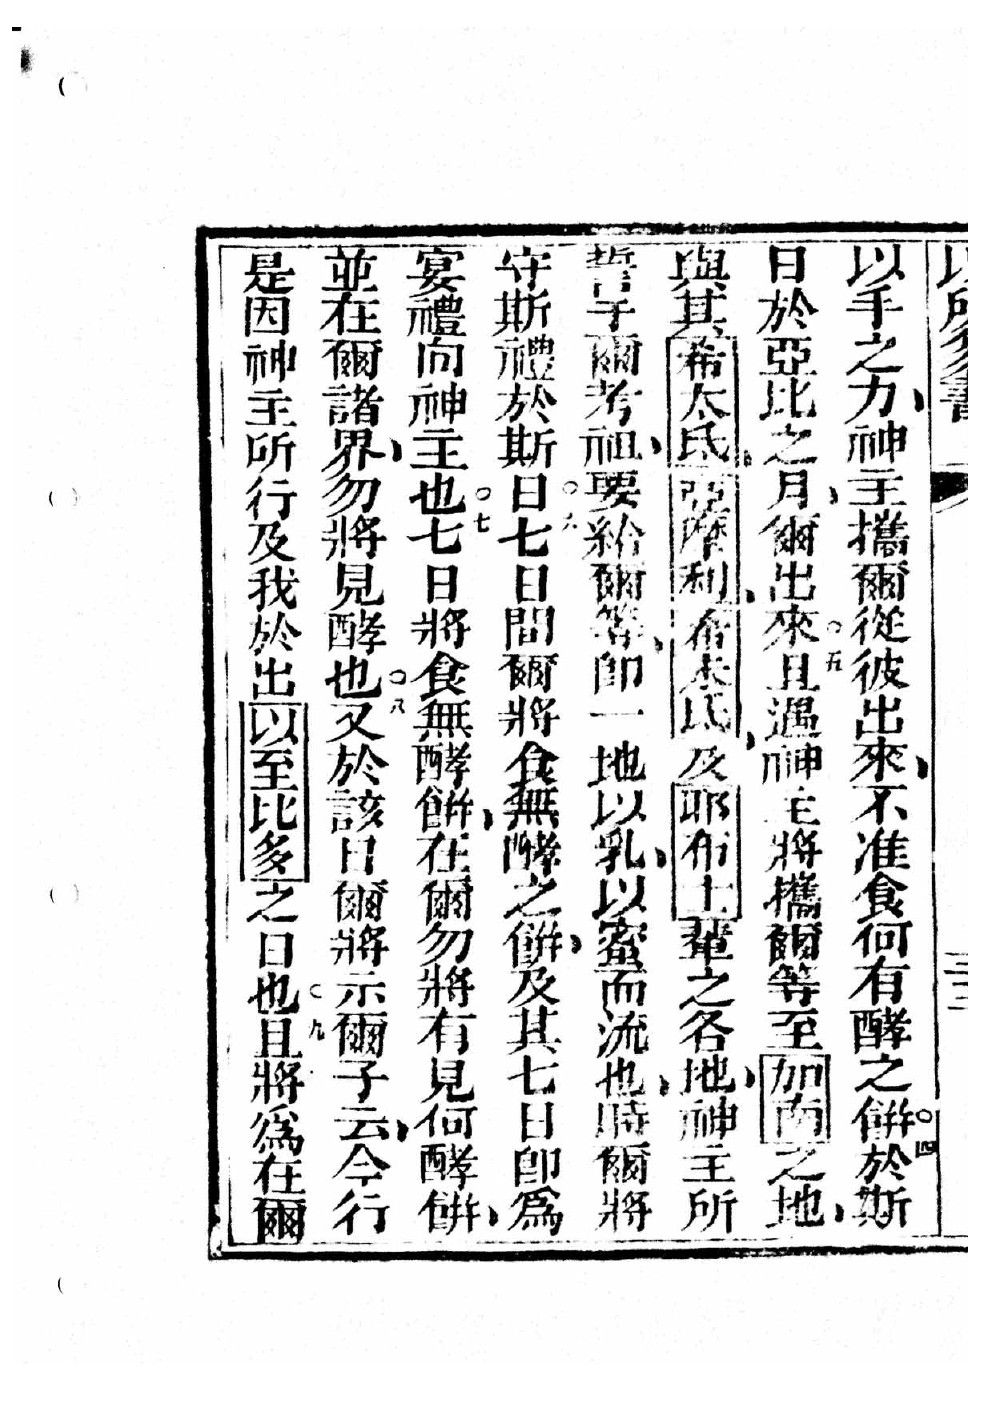 以手之力、神主攜爾從彼出來、不准食何有酵之餅○四於斯
日於亞比之月、爾出來○五且遇神主將攜爾等至加南之地、
與其希太氏、亞摩利、希未氏、及耶布士輩之各地、神主所
誓于爾考祖、要給爾等、卽一地以乳、以蜜而流也、時爾將
守斯禮於斯日○六七日間爾將食無酵之餅、及其七日卽為
宴禮向神主也○七七日將食無酵餅、在爾勿將有見何酵餅、
並在爾諸界、勿將見酵也○八又於該日爾將示爾子云、今行
是因神主所行及我於出以至比多之日也○九且將為在爾